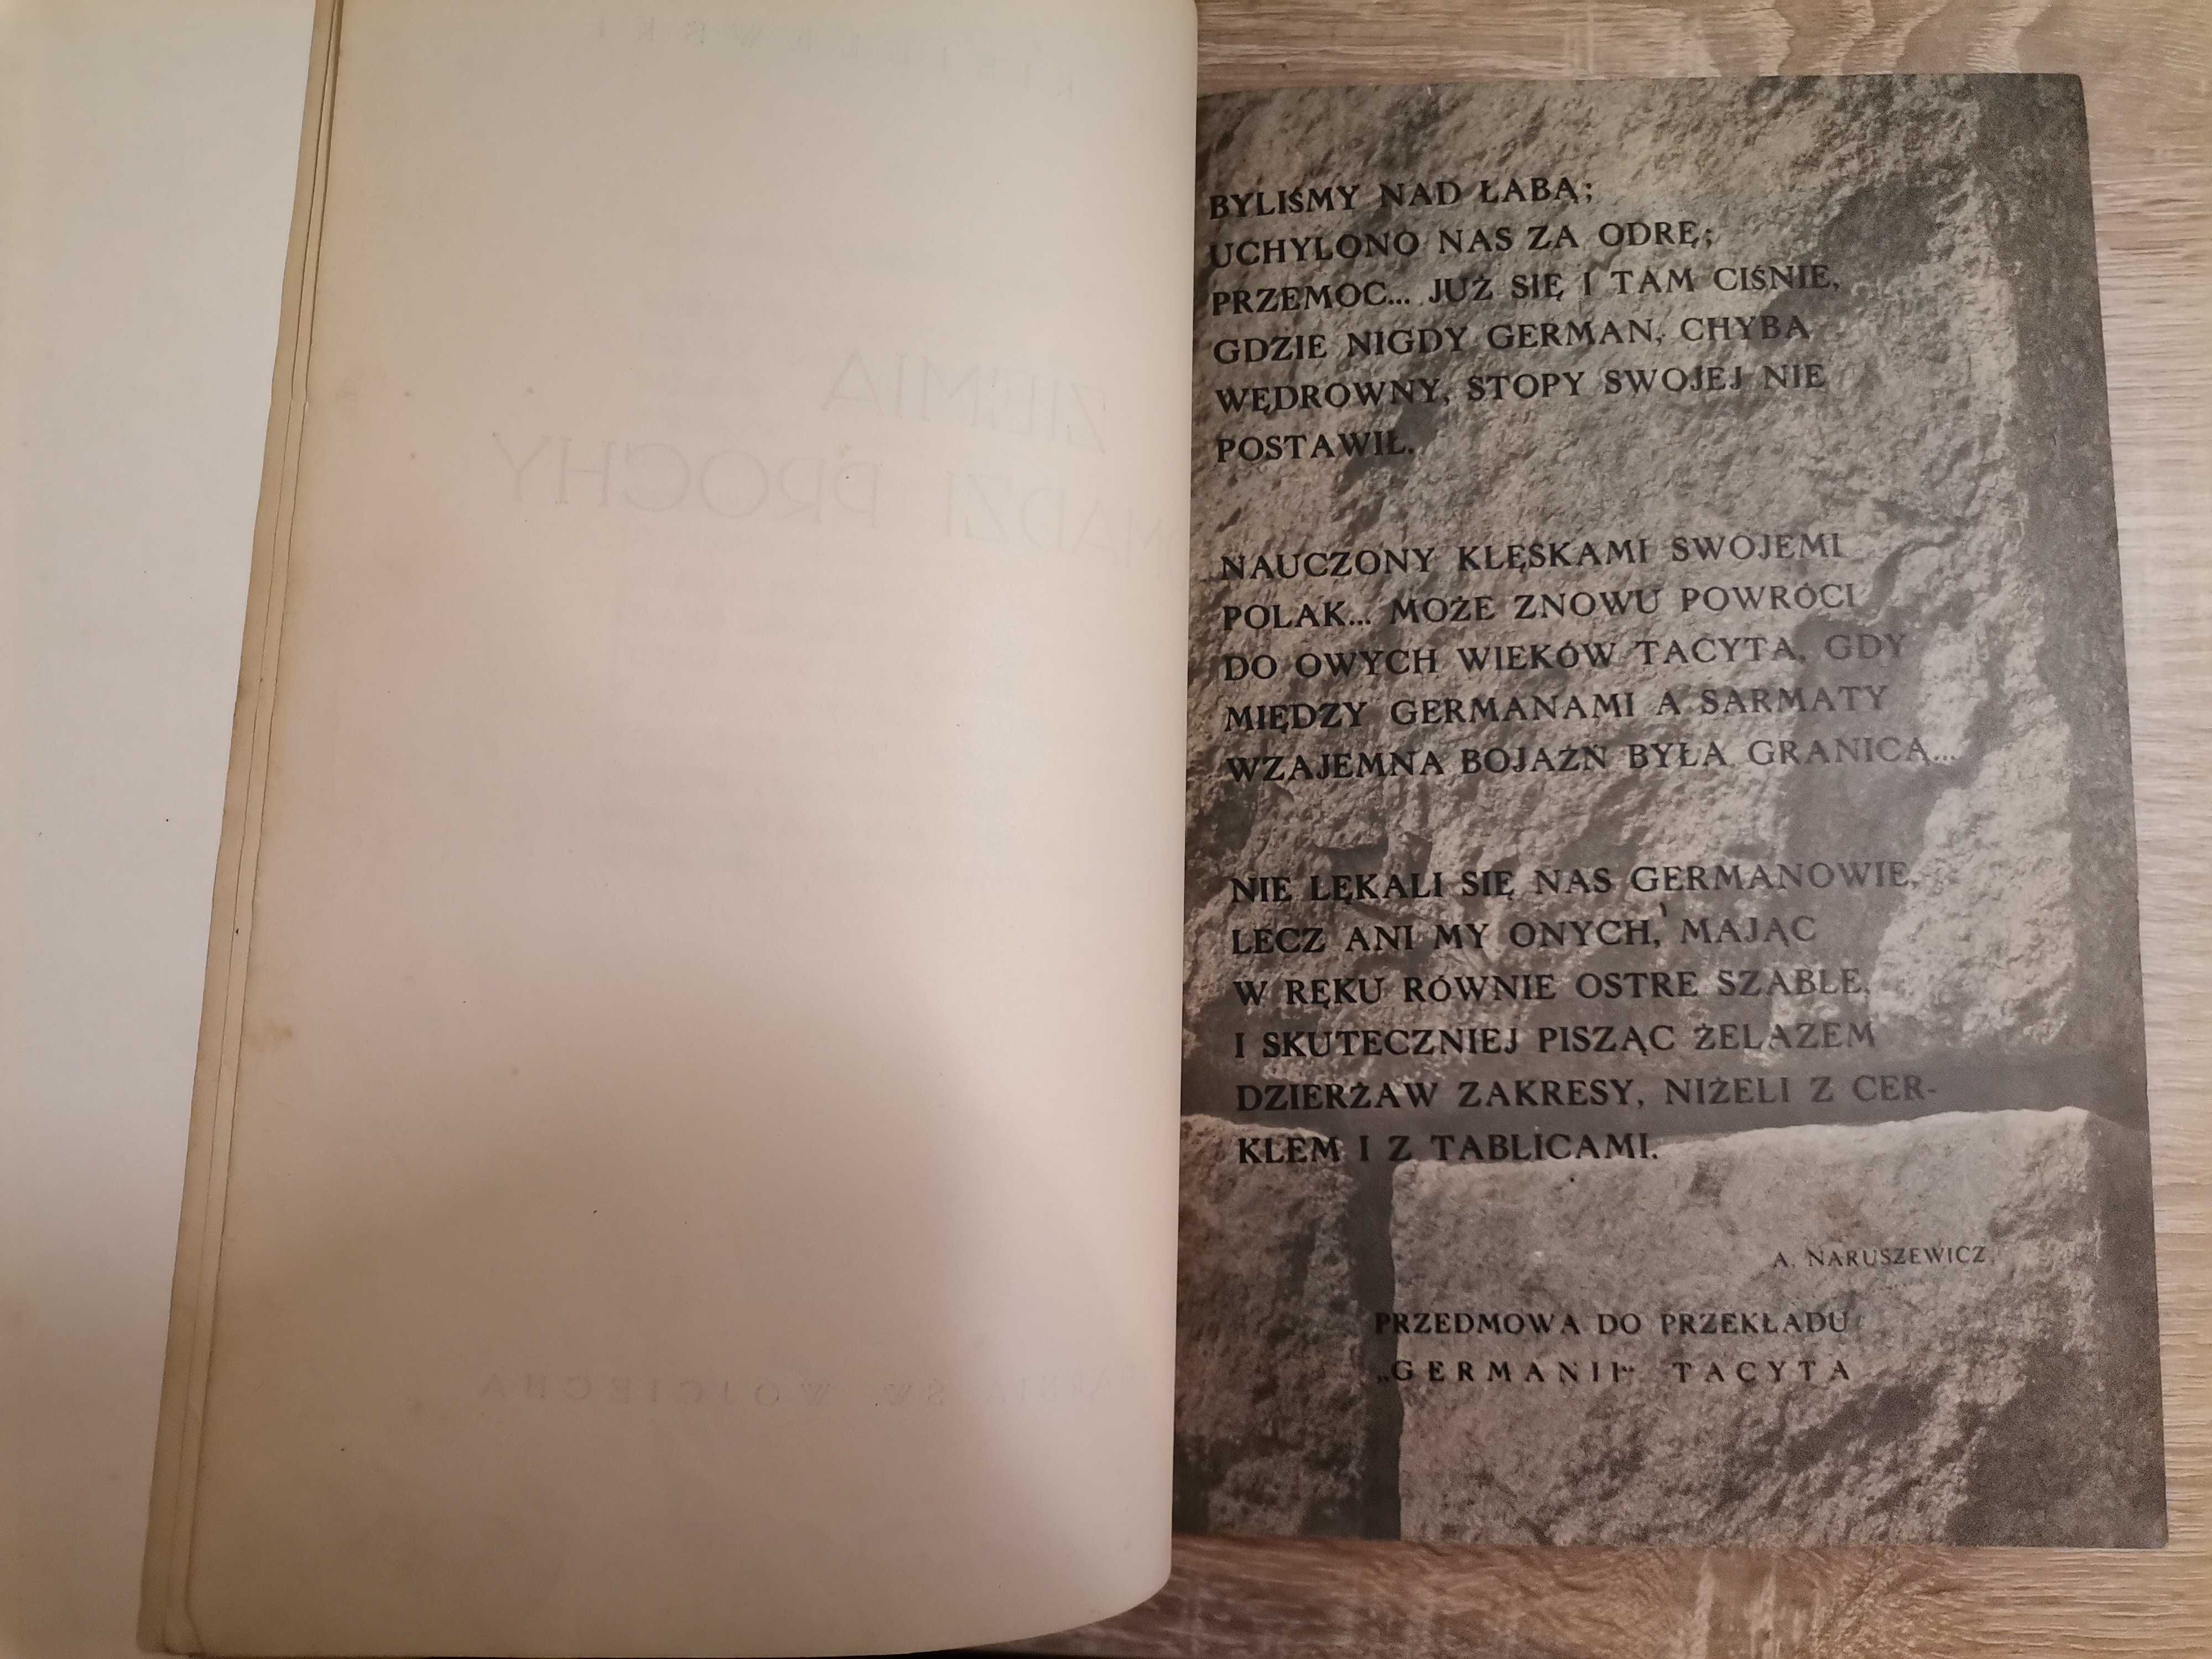 ZIEMIA
PROCHY
ŚW. WOJCIECHA
BYLIŚMY NAD ŁABĄ;
UCHYLONO NAS ZA ODRĘ;
PRZEMOC... JUŻ SIĘ I TAM CIŚNIE,
GDZIE NIGDY GERMAN, CHYBA
WĘDROWNY, STOPY SWOJEJ NIE
POSTAWIŁ.
NAUCZONY KLĘSKAMI SWOJEMI
POLAK... MOŻE ZNOWU POWRÓCI
DO OWYCH WIEKÓW TACYTA, GDY
MIĘDZY GERMANAMI A SARMATY
WZAJEMNA BOJAŹŃ BYŁA GRANICĄ...
NIE LĘKALI SIĘ NAS GERMANOWIE,
LECZ ANI MY ONYCH, MAJĄC
W RĘKU RÓWNIE OSTRE SZABLE,
I SKUTECZNIEJ PISZĄC ŻELAZEM
DZIERŻAW ZAKRESY, NIŻELI Z CER-
KLEM I Z TABLICAMI.
A. NARUSZEWICZ,
PRZEDMOWA DO PRZEKŁADU
„GERMANII“ TACYTA